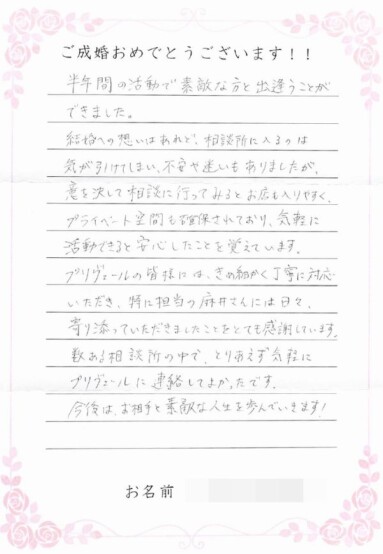 ご成婚おめでとうございます！！
半年間の活動で素敵な方と出逢うことが
できました。
結婚への想いはあれど、相談所に入るのは
気が引けてしまい、不安や迷いもありましたが、
意を決して相談に行ってみるとお店も入りやすく、
プライベート空間も確保されており、気軽に
活動できると安心したことを覚えています。
プリヴェールの皆様には、きめ細かく丁寧に対応
いただき、特に担当の麻井さんには日々、
寄り添っていただきましたことをとても感謝しています。
数ある相談所の中で、とりあえず気軽に
プリヴェールに連絡してよかったです。
今後は、お相手と素敵な人生を歩んでいきます！
お名前